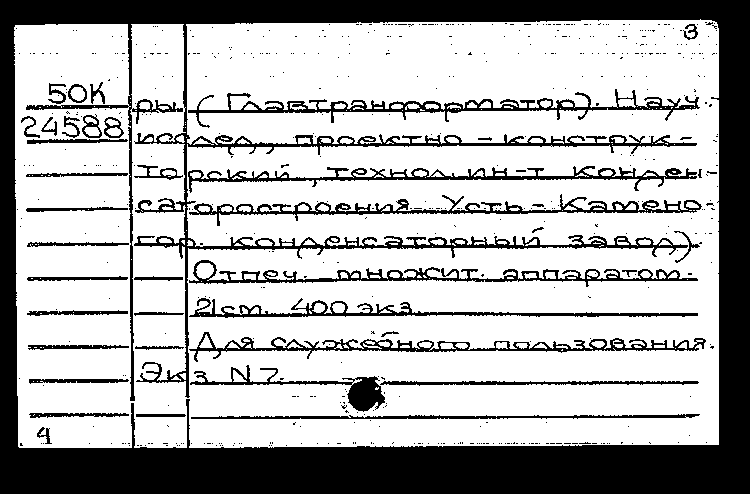 3
50К
24588
ры (Главтрансформатор). Науч.-
исслед., проектно-конструк-
торский, технол. ин-т конден-
саторостроения. Усть-Камено-
гор. конденсаторный завод).
Отпеч. множит. аппаратом.
21см. 400 экз.
Для служебного пользования.
Экз. N 7.
4